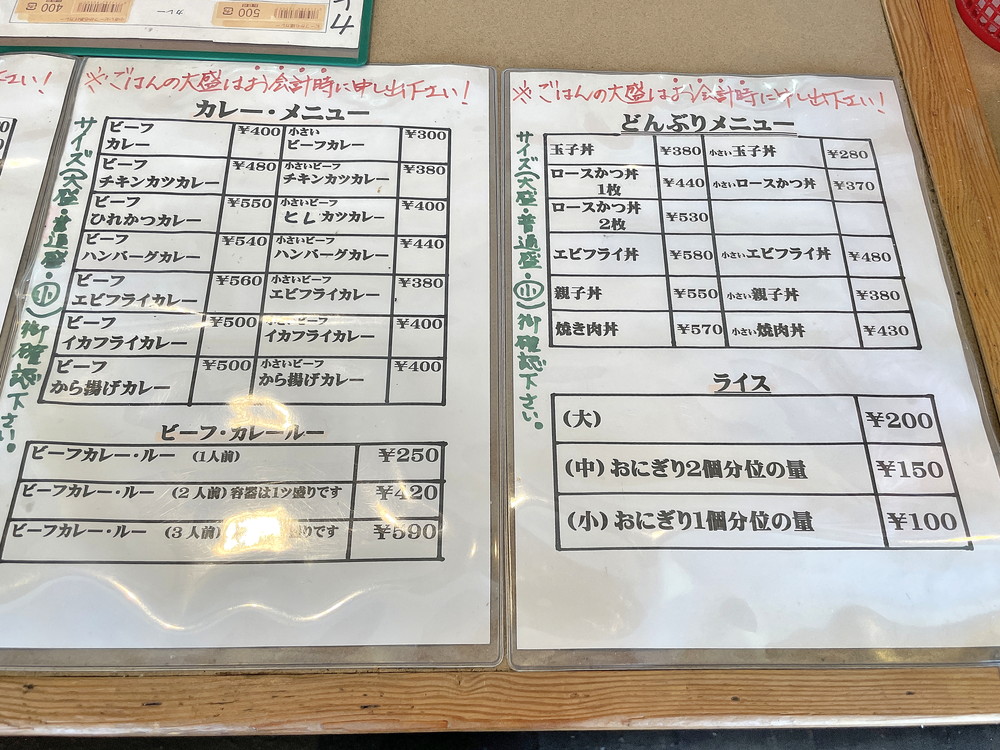 カレー
500
400
カ
※ごはんの大盛はお会計時に申し出下エい!
カレー・メニュー
サイズ(大盛・普通盛・小)御確認下さい。
ビーフ
カレー ¥400 小さい
ビーフカレー ¥300
ビーフ
チキンカツカレー ¥480 小さいビーフ
チキンカツカレー ¥380
ビーフ
ひれかつカレー ¥550 小さいビーフ
とレカツカレー ¥400
ビーフ
ハンバーグカレー ¥540 小さいビーフ
ハンバーグカレー ¥440
ビーフ
エビフライカレー ¥560 小さいビーフ
エビフライカレー ¥380
ビーフ
イカフライカレー ¥500 小さいビーフ
イカフライカレー ¥400
ビーフ
から揚げカレー ¥500 小さいビーフ
から揚げカレー ¥400
ビーフ・カレールー
ビーフカレー・ルー (1人前) ¥250
ビーフカレー・ルー (2人前)容器は1ツ盛りです ¥420
ビーフカレー・ルー (3人前) りです ¥590
※ごはんの大盛はお会計時に申し出下エい!
どんぶりメニュー
サイズ(大盛・普通盛・小)御確認下さい。
玉子丼 ¥380 小さい玉子丼 ¥280
ロースかつ丼
1枚 ¥440 小さいロースかつ丼 ¥370
ロースかつ丼
2枚 ¥530
エビフライ丼 ¥580 小さいエビフライ丼 ¥480
親子丼 ¥550 小さい親子丼 ¥380
焼き肉丼 ¥570 小さい焼肉丼 ¥430
ライス
(大) ¥200
(中)おにぎり2個分位の量 ¥150
(小)おにぎり1個分位の量 ¥100